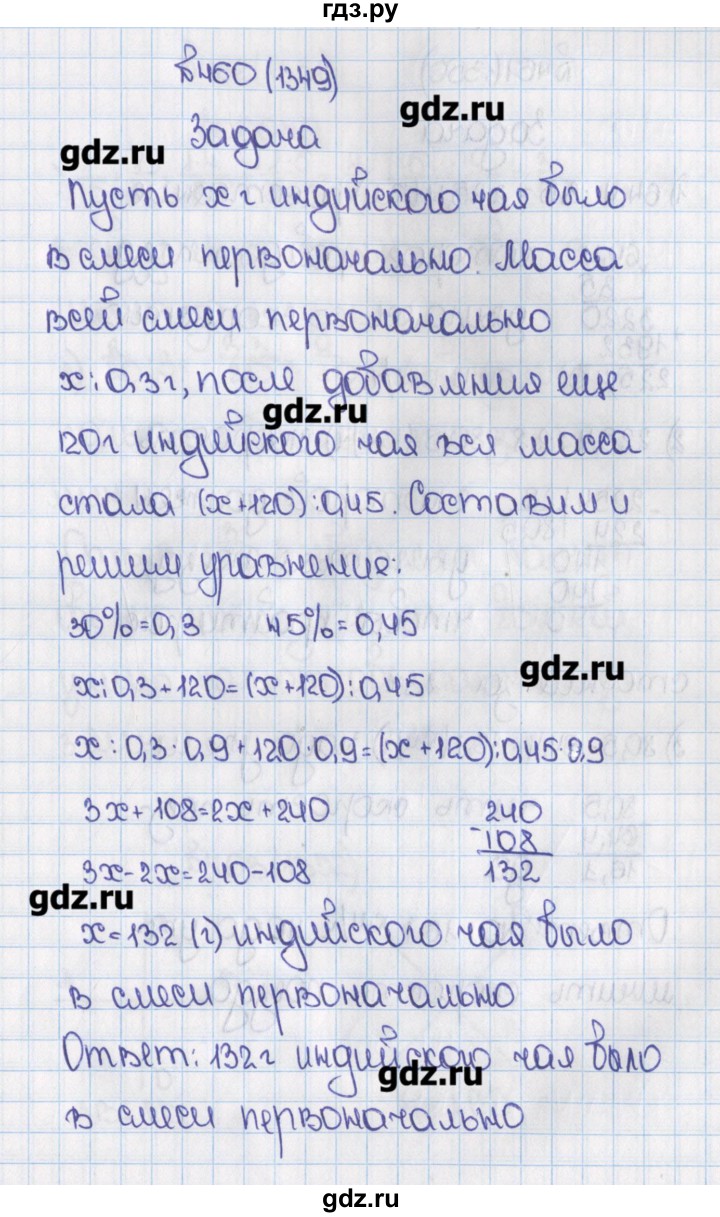 гдз.ру
в460 (1349)
gdz.ru
Задача
gdz.ru
Пусть x г индийского чая было
в смеси первоначально. Масса
всей смеси первоначально
x:0,3 г, после добавления еще
gdz.ru
120 г индийского чая вся масса
стала (x+120):0,45. Составим и
решим уравнение:
30%=0,3 45%=0,45
gdz.ru
x:0,3+120=(x+120):0,45
x:0,3·0,9+120·0,9=(x+120):0,45·0,9
3x+108=2x+240 240
-108
3x-2x=240-108 132
gdz.ru
x=132 (г) индийского чая было
в смеси первоначально
Ответ: 132 г индийского чая было
gdz.ru
в смеси первоначально
gdz.ru